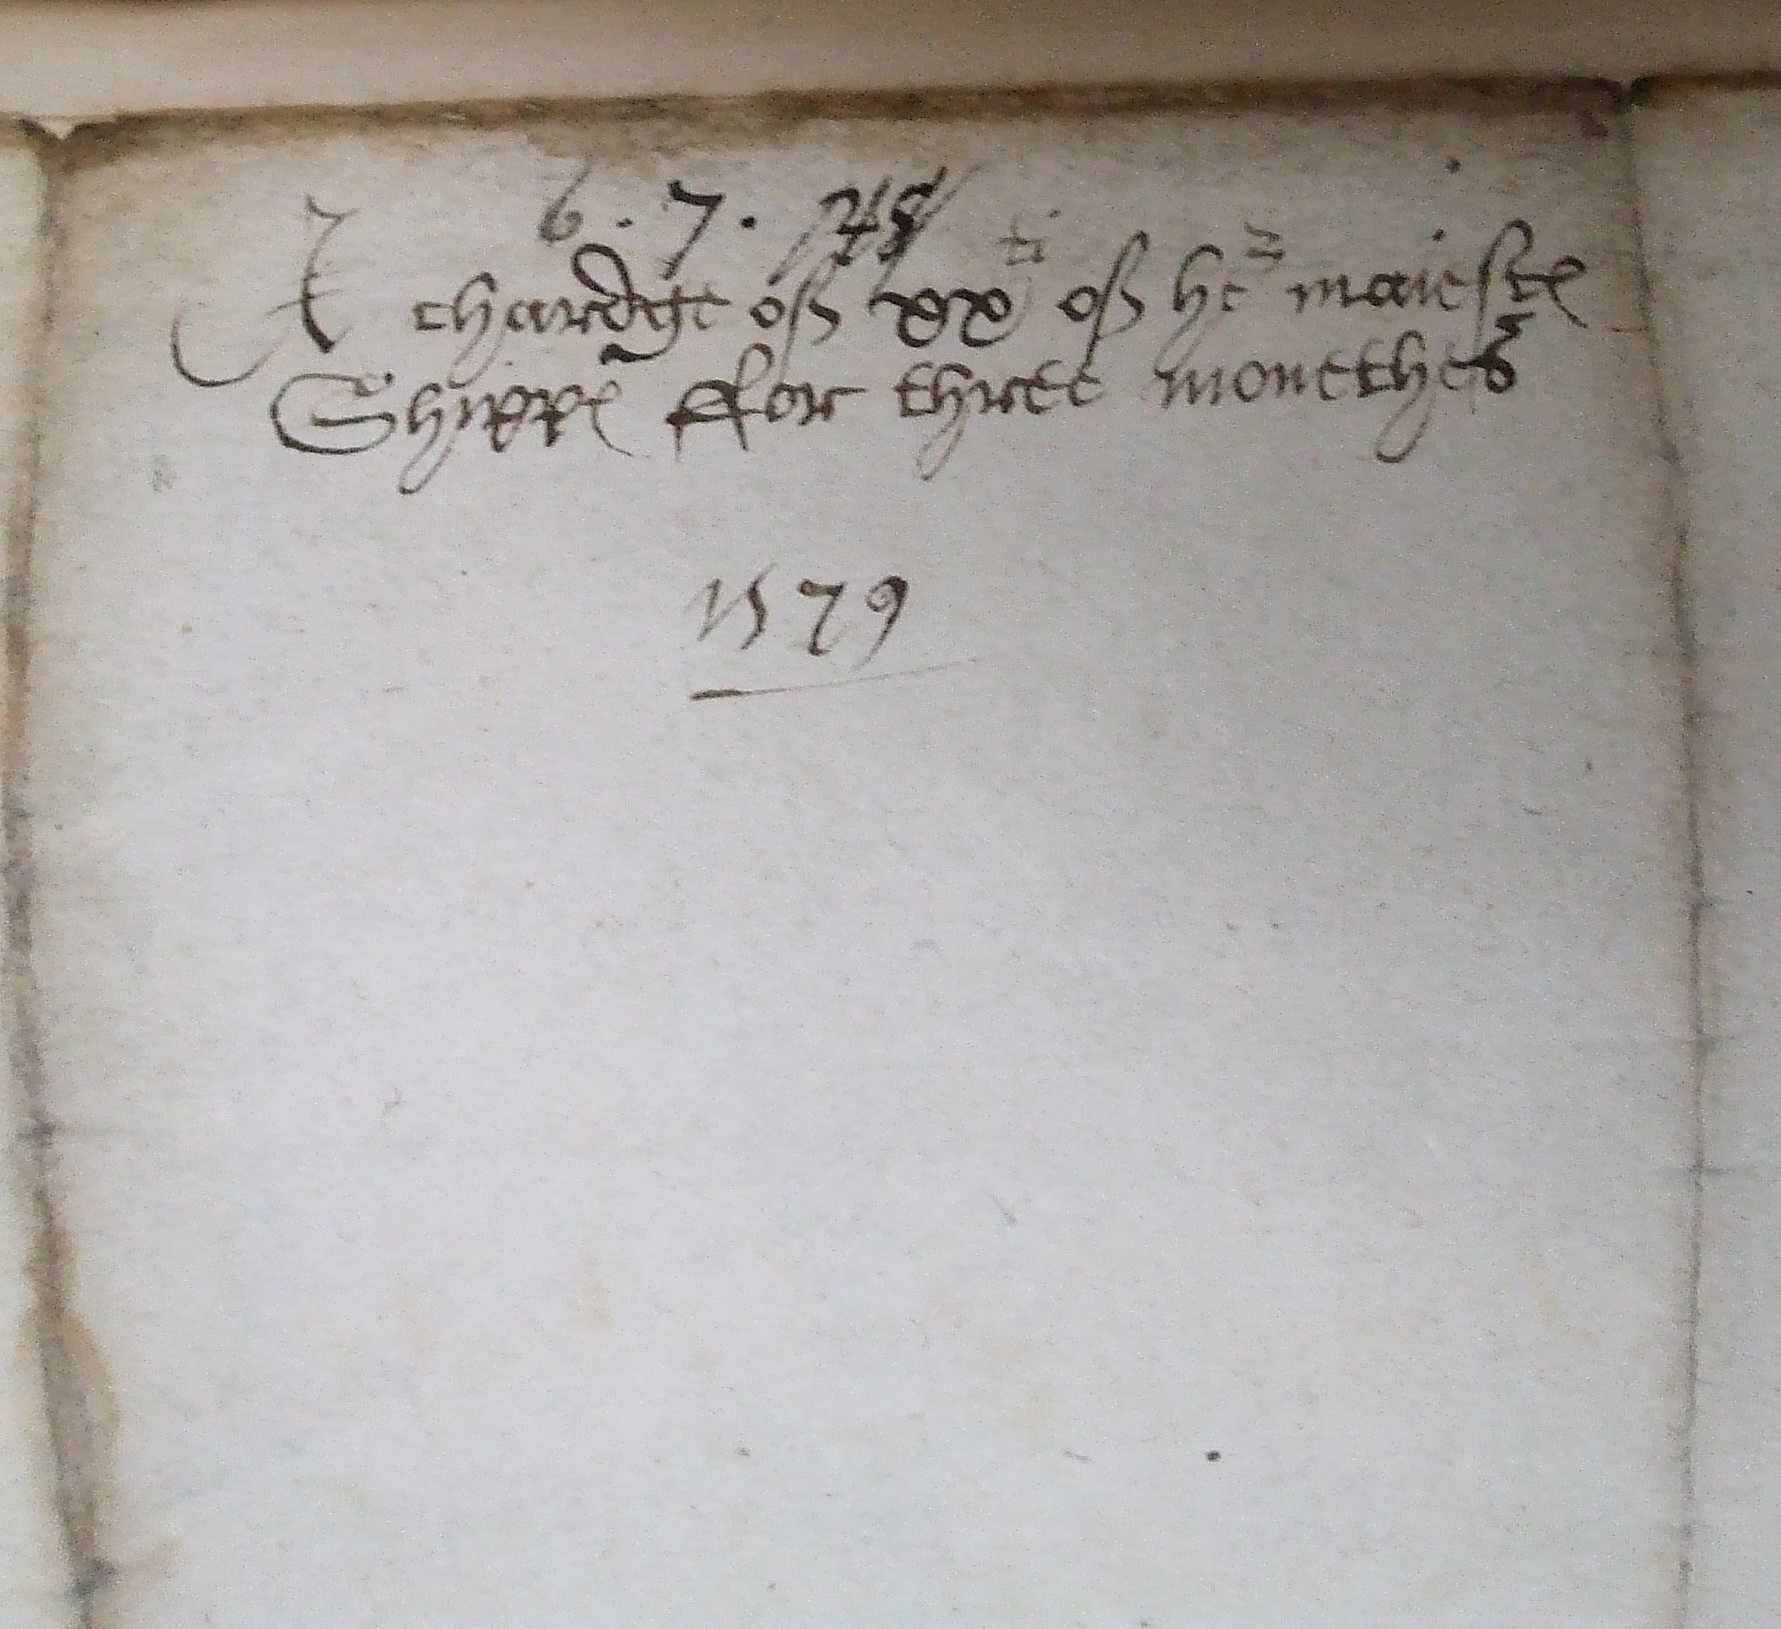 6 . 7 .
A chardge of xx^ti of he^r maiestes
Shippes ffor three monethes
1579